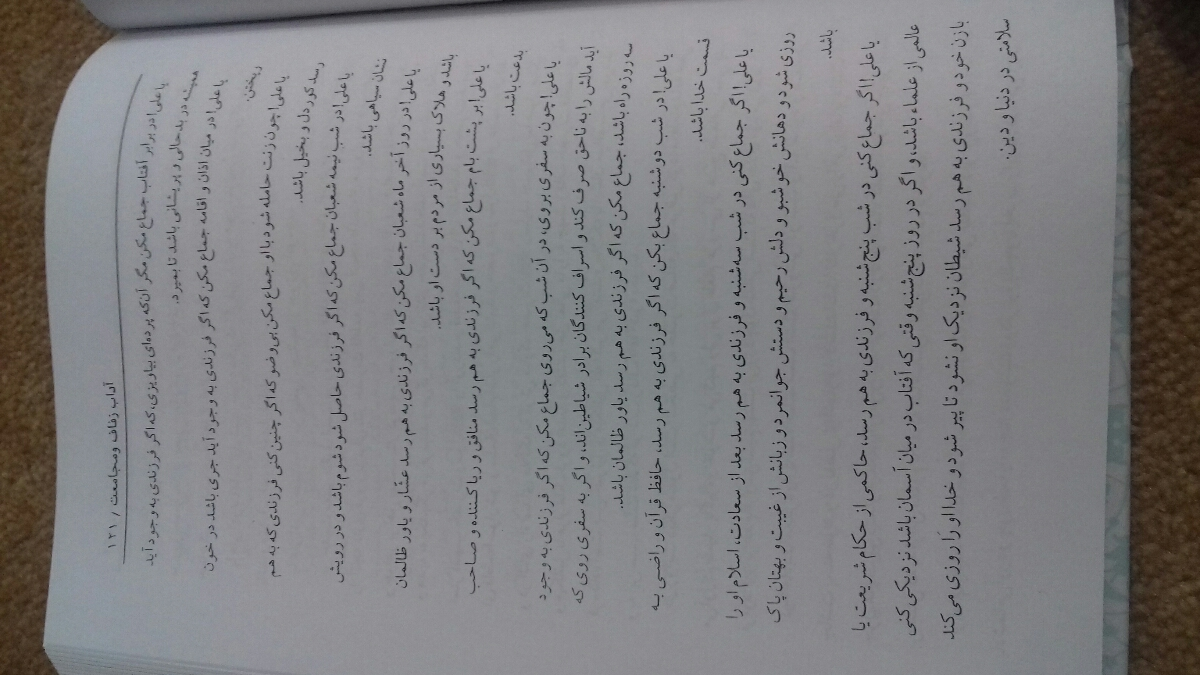 آداب زفاف و مجامعت / ۱۲۱
یا علی! در برابر آفتاب جماع مکن مگر آن‌که پرده‌ای بیاویزی، که اگر فرزندی به وجود آید
همیشه در بدحالی و پریشانی باشد تا بمیرد.
یا علی! در میان اذان و اقامه جماع مکن که اگر فرزندی به وجود آید جری باشد در خون
ریختن.
یا علی! چون زنت حامله شود با او جماع مکن بی‌وضو که اگر چنین کنی فرزندی که به هم
رسد کوردل و بخیل باشد.
یا علی! در شب نیمه شعبان جماع مکن که اگر فرزندی حاصل شود شوم باشد و در رویش
نشان سیاهی باشد.
یا علی! در روز آخر ماه شعبان جماع مکن که اگر فرزندی به هم رسد عشّار و یاور ظالمان
باشد و هلاک بسیاری از مردم بر دست او باشد.
یا علی! بر پشت بام جماع مکن که اگر فرزندی به هم رسد منافق و ریاکننده و صاحب
بدعت باشد.
یا علی! چون به سفری بروی، در آن شب که می‌روی جماع مکن که اگر فرزندی به وجود
آید مالش را به ناحق صرف کند و اسراف کنندگان برادر شیاطین‌اند، و اگر به سفری روی که
سه روزه راه باشد، جماع مکن که اگر فرزندی به هم رسد یاور ظالمان باشد.
یا علی! در شب دوشنبه جماع بکن که اگر فرزندی به هم رسد، حافظ قرآن و راضی به
قسمت خدا باشد.
یا علی! اگر جماع کنی در شب سه‌شنبه و فرزندی به هم رسد بعد از سعادت، اسلام او را
روزی شود و دهانش خوشبو و دلش رحیم و دستش جوانمرد و زبانش از غیبت و بهتان پاک
باشد.
یا علی! اگر جماع کنی در شب پنج‌شنبه و فرزندی به هم رسد، حاکمی از حکام شریعت یا
عالمی از علماء باشد، و اگر در روز پنج‌شنبه وقتی که آفتاب در میان آسمان باشد نزدیکی کنی
با زن خود و فرزندی به هم رسد شیطان نزدیک او نشود تا پیر شود و خدا او را روزی می‌کند
سلامتی در دنیا و دین.